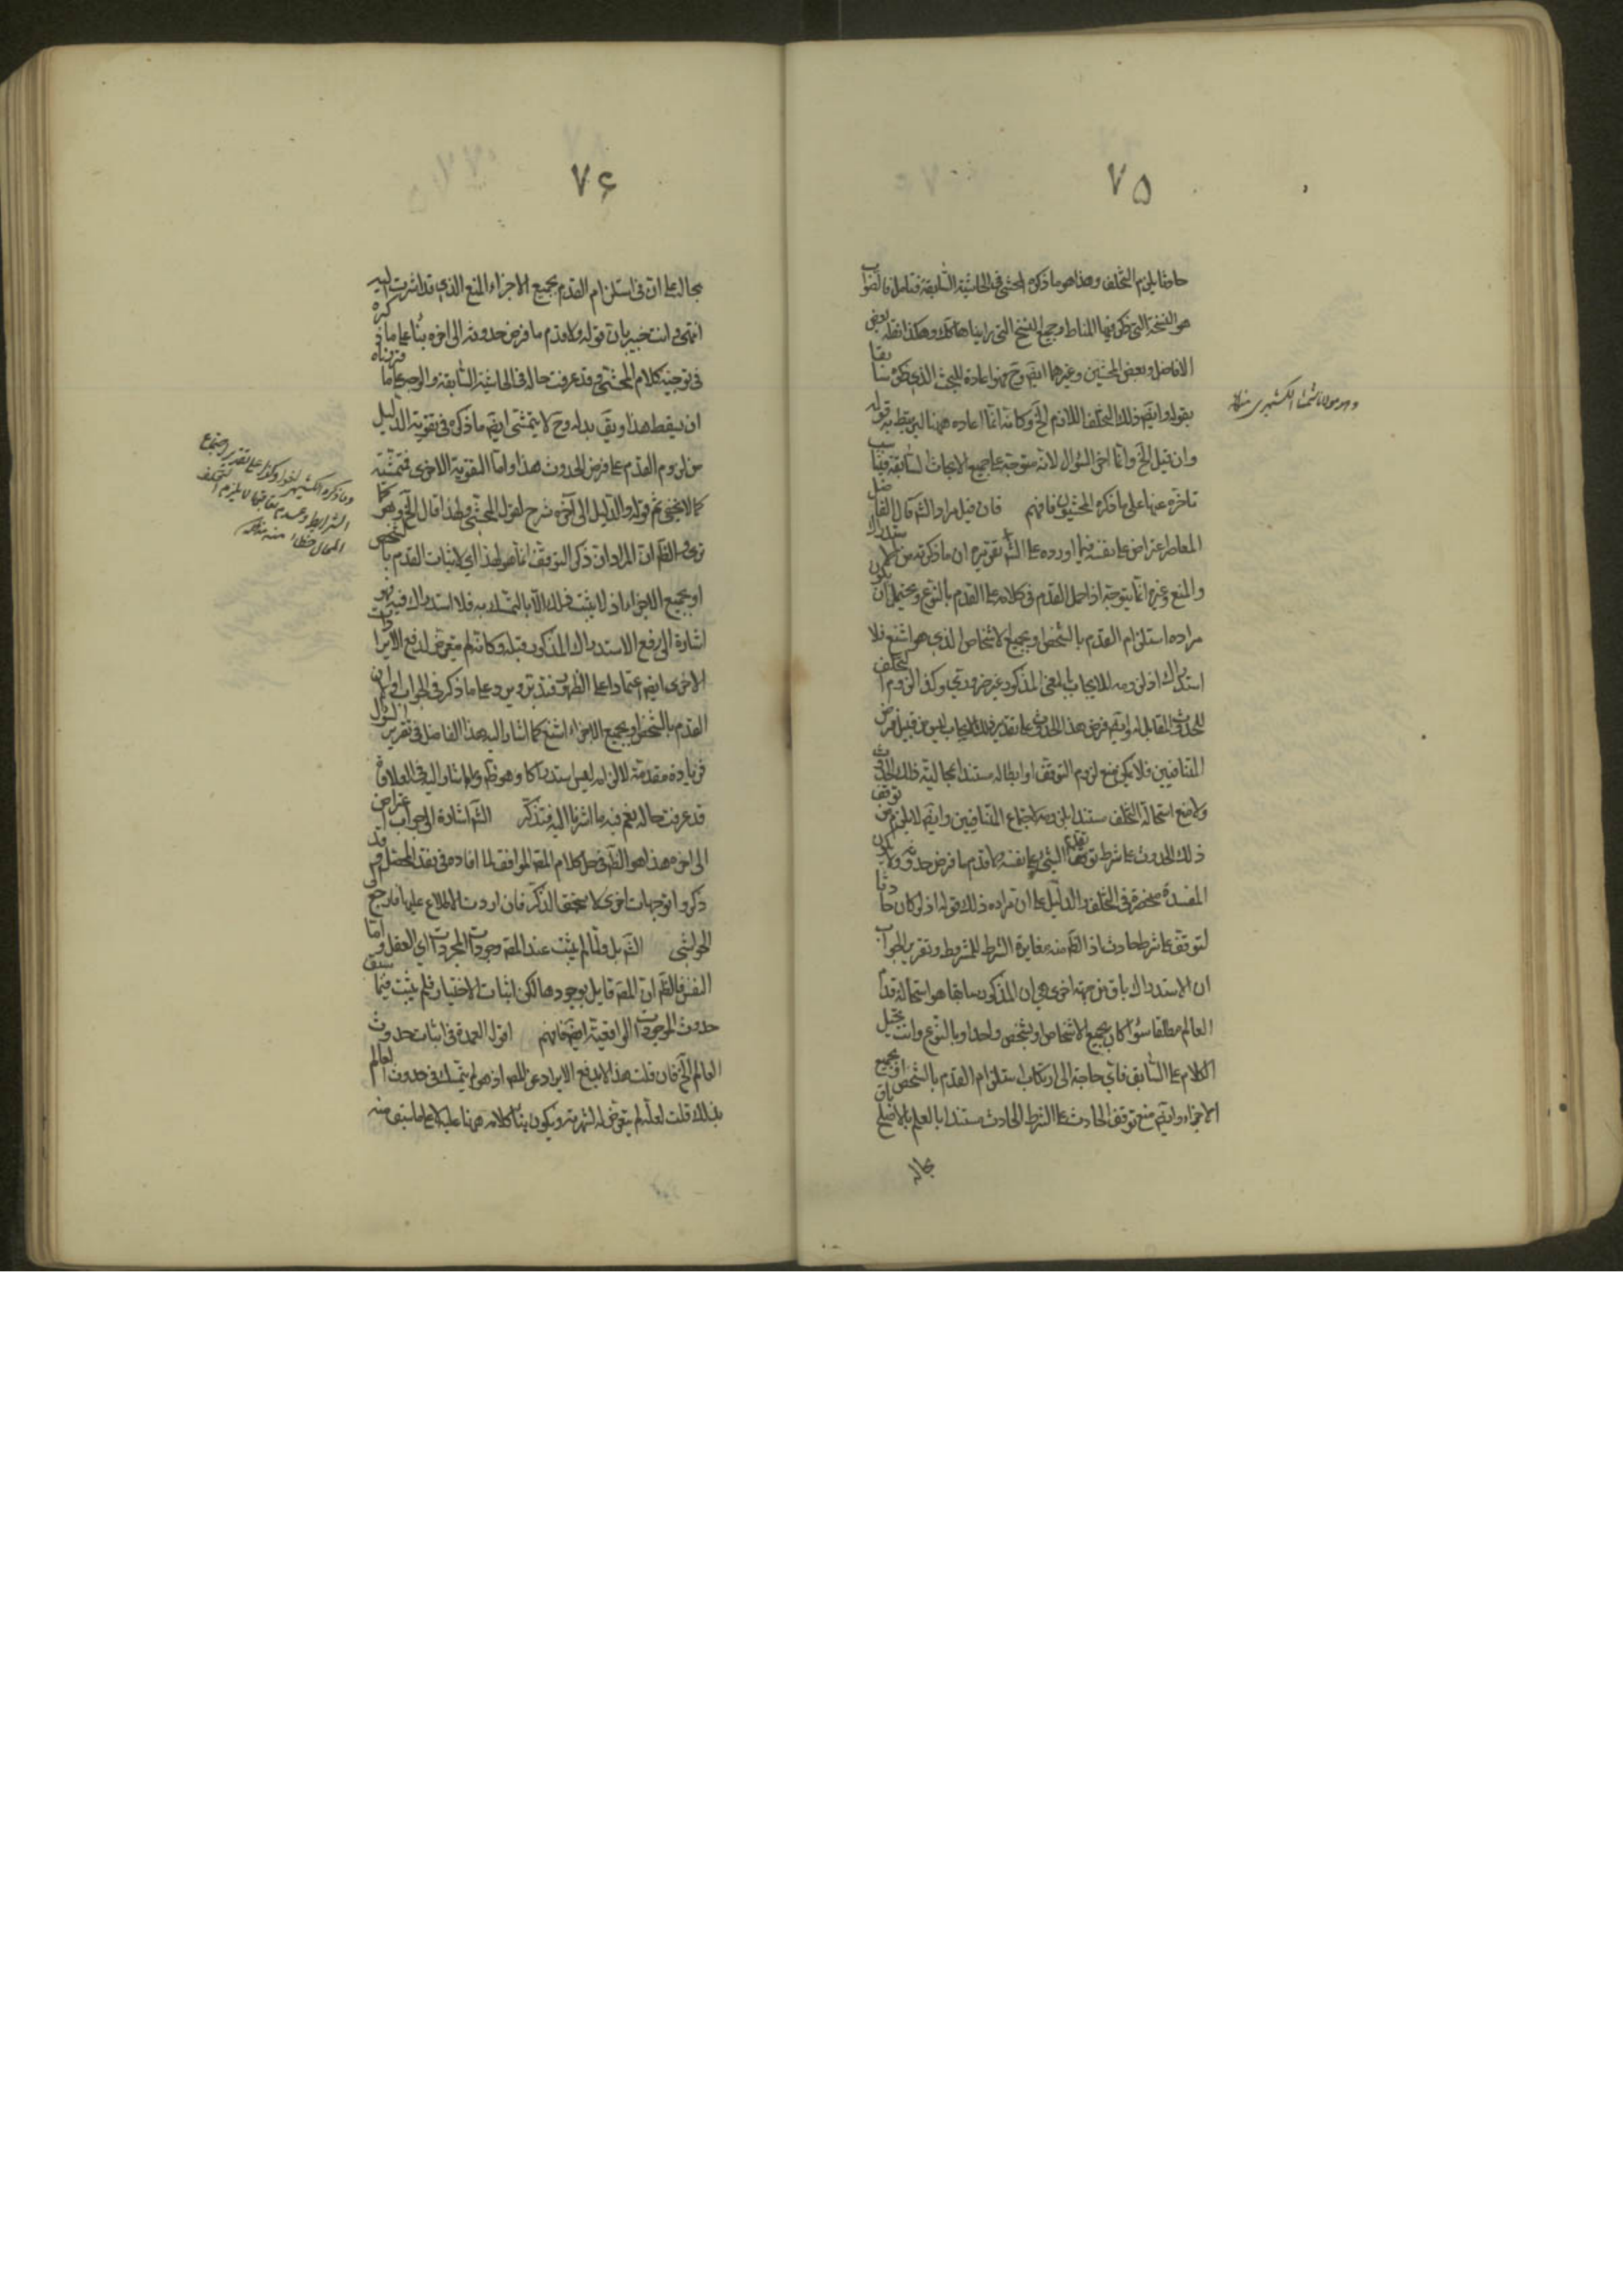 ٧٥
حادثا يلزم التخلف وهذا هو ما ذكره المحشي في الحاشية السابقة فتامل فالصواب
هو النسخة التي ذكر فيها المناط وجميع النسخ التي رايناها كك وهكذا نقله بعض
الافاضل وبعض المحشين وغيرهما ايضا وح هذا اعادة للبحث الذي ذكره سابقا
بقوله وايضا ذلك التخلف اللازم الخ وكانه انما اعاده ههنا ليرتبط به قوله
وان قيل الخ وانما اخر السؤال لانه متوجه على جميع الابحاث السابقة فيناسب
تاخره عنها على ما ذكره المحشيون فافهم قال فان قيل مراد الش قال الفاضل
المعاصر اعتراض على نفسه فيما اورده على الش تقريره ان ما ذكرته من الاستدراك
والمنع وغيره انما يتوجه اذا حمل القدم في كلامه على القدم بالنوع ويحتمل ان يكون
مراده استلزام القدم بالشخص او بجميع الاشخاص الذي هو اشنع فلا
استدراك اذ لزومه للايجاب بالمعنى المذكور غير ضروري وكذا لزوم التخلف
للحدوث المقابل له وايضا فرض هذا الحدوث على تقدير ذلك الايجاب ليس من قبيل فرض
المتنافيين فلا يمكن منع لزوم التوقف او ابطاله مستندا بمحالية ذلك الحدوث
ولا منع استحالة التخلف مستندا بلزومه لاجتماع المتنافيين وايضا لا يلزم من توقف
ذلك الحدوث على شرط توقف تقدم الشيء على نفسه ولا قدم ما فرض حدوثه ولا تكون
المفسدة منحصرة في التخلف والدليل على ان مراده ذلك قوله اذ لو كان حادثا
لتوقف على شرط حادث اذ الظ منه مغايرة الشرط للمشروط وتقرير الجواب
ان الاستدراك باق من جهة اخرى هي ان المذكور سابقا هو استحالة قدم
العالم مطلقا سواء كان بجميع الاشخاص او بشخص واحد او بالنوع وانت بحمل
الكلام على السابق فاي حاجة الى ارتكاب استلزام القدم بالشخص او بجميع
الاجزاء وايضا منع توقف الحادث على الشرط الحادث مستندا بالعلم بالاصلح باق
بحاله
وهو مولانا شمسا الكشميري منه
٧۶
بحاله على ان في استلزام القدم بجميع الاجزاء المنع الذي قد اشرت اليه
انتهى وانت خبير بان قوله ولا قدم ما فرض حدوثه الى اخره بناء على ما ذكره
في توجيه كلام المحشي وقد عرفت حاله في الحاشية السابقة والوجه على ما قررناه
ان يسقط هذا ويق بدله وح لا يتمشى ايضا ما ذكره في تقوية الدليل
من لزوم القدم على فرض الحدوث هذا واما التقوية الاخرى فتمشية
كما لا يخفى ثم قوله والدليل الى آخره شرح لقول المحشي ولهذا قال الخ وهو كما
ترى والظ ان المراد ان ذكر التوقف انما هو لهذا اي لاثبات القدم بالشخص
او بجميع الاجزاء اذ لا يثبت ذلك الا بالتمسك به فلا استدراك فيه فهو
اشارة الى رفع الاستدراك المذكور قبله وكانه لم يتعرض لدفع الايرادات
الاخرى ايضا اعتمادا على الظهور فتدبر ويرد على ما ذكر في الجواب اولا ان
القدم بالشخص او بجميع الاجزاء اشنع كما اشار اليه هذا الفاضل في تقرير السؤال
فزيادة مقدمة لالزامه ليس استدراكا وهو ظ وما اشار اليه في العلاوة
قد عرفت حاله نعم فيه ما اشرنا اليه فتذكر قال الش اشارة الى جواب اعتراض
الى اخره هذا هو الظ في حل كلام المص الموافق لما افاده في نقد المحصل وقد
ذكروا توجيهات اخرى لا يستحق الذكر فان اردت الاطلاع عليها فارجع الى
الحواشي قال الش بل ولما لم يثبت عند المص وجود المجردات اي العقل واما
النفس فالظ ان المص قايل بوجودها لكن اثبات الاختيار فلم يثبت فيما سبق
حدوث الموجودات الواقعية ايضا فافهم قال اقول العمدة في اثبات حدوث
العالم الخ فان قلت هذا لا يدفع الايراد عن المص اذ هو لم يتمسك في حدوث العالم
بذلك قلت لعله لم يتعرض له لشهرته ويكون بناء كلامه ههنا عليه لا على ما سبق منه
وما ذكره الكشميري اخيرا وكذا على تقدير اجتماع
الشرايط وعدم تعاقبها لا يلزم التخلف
المحال خطاء منه